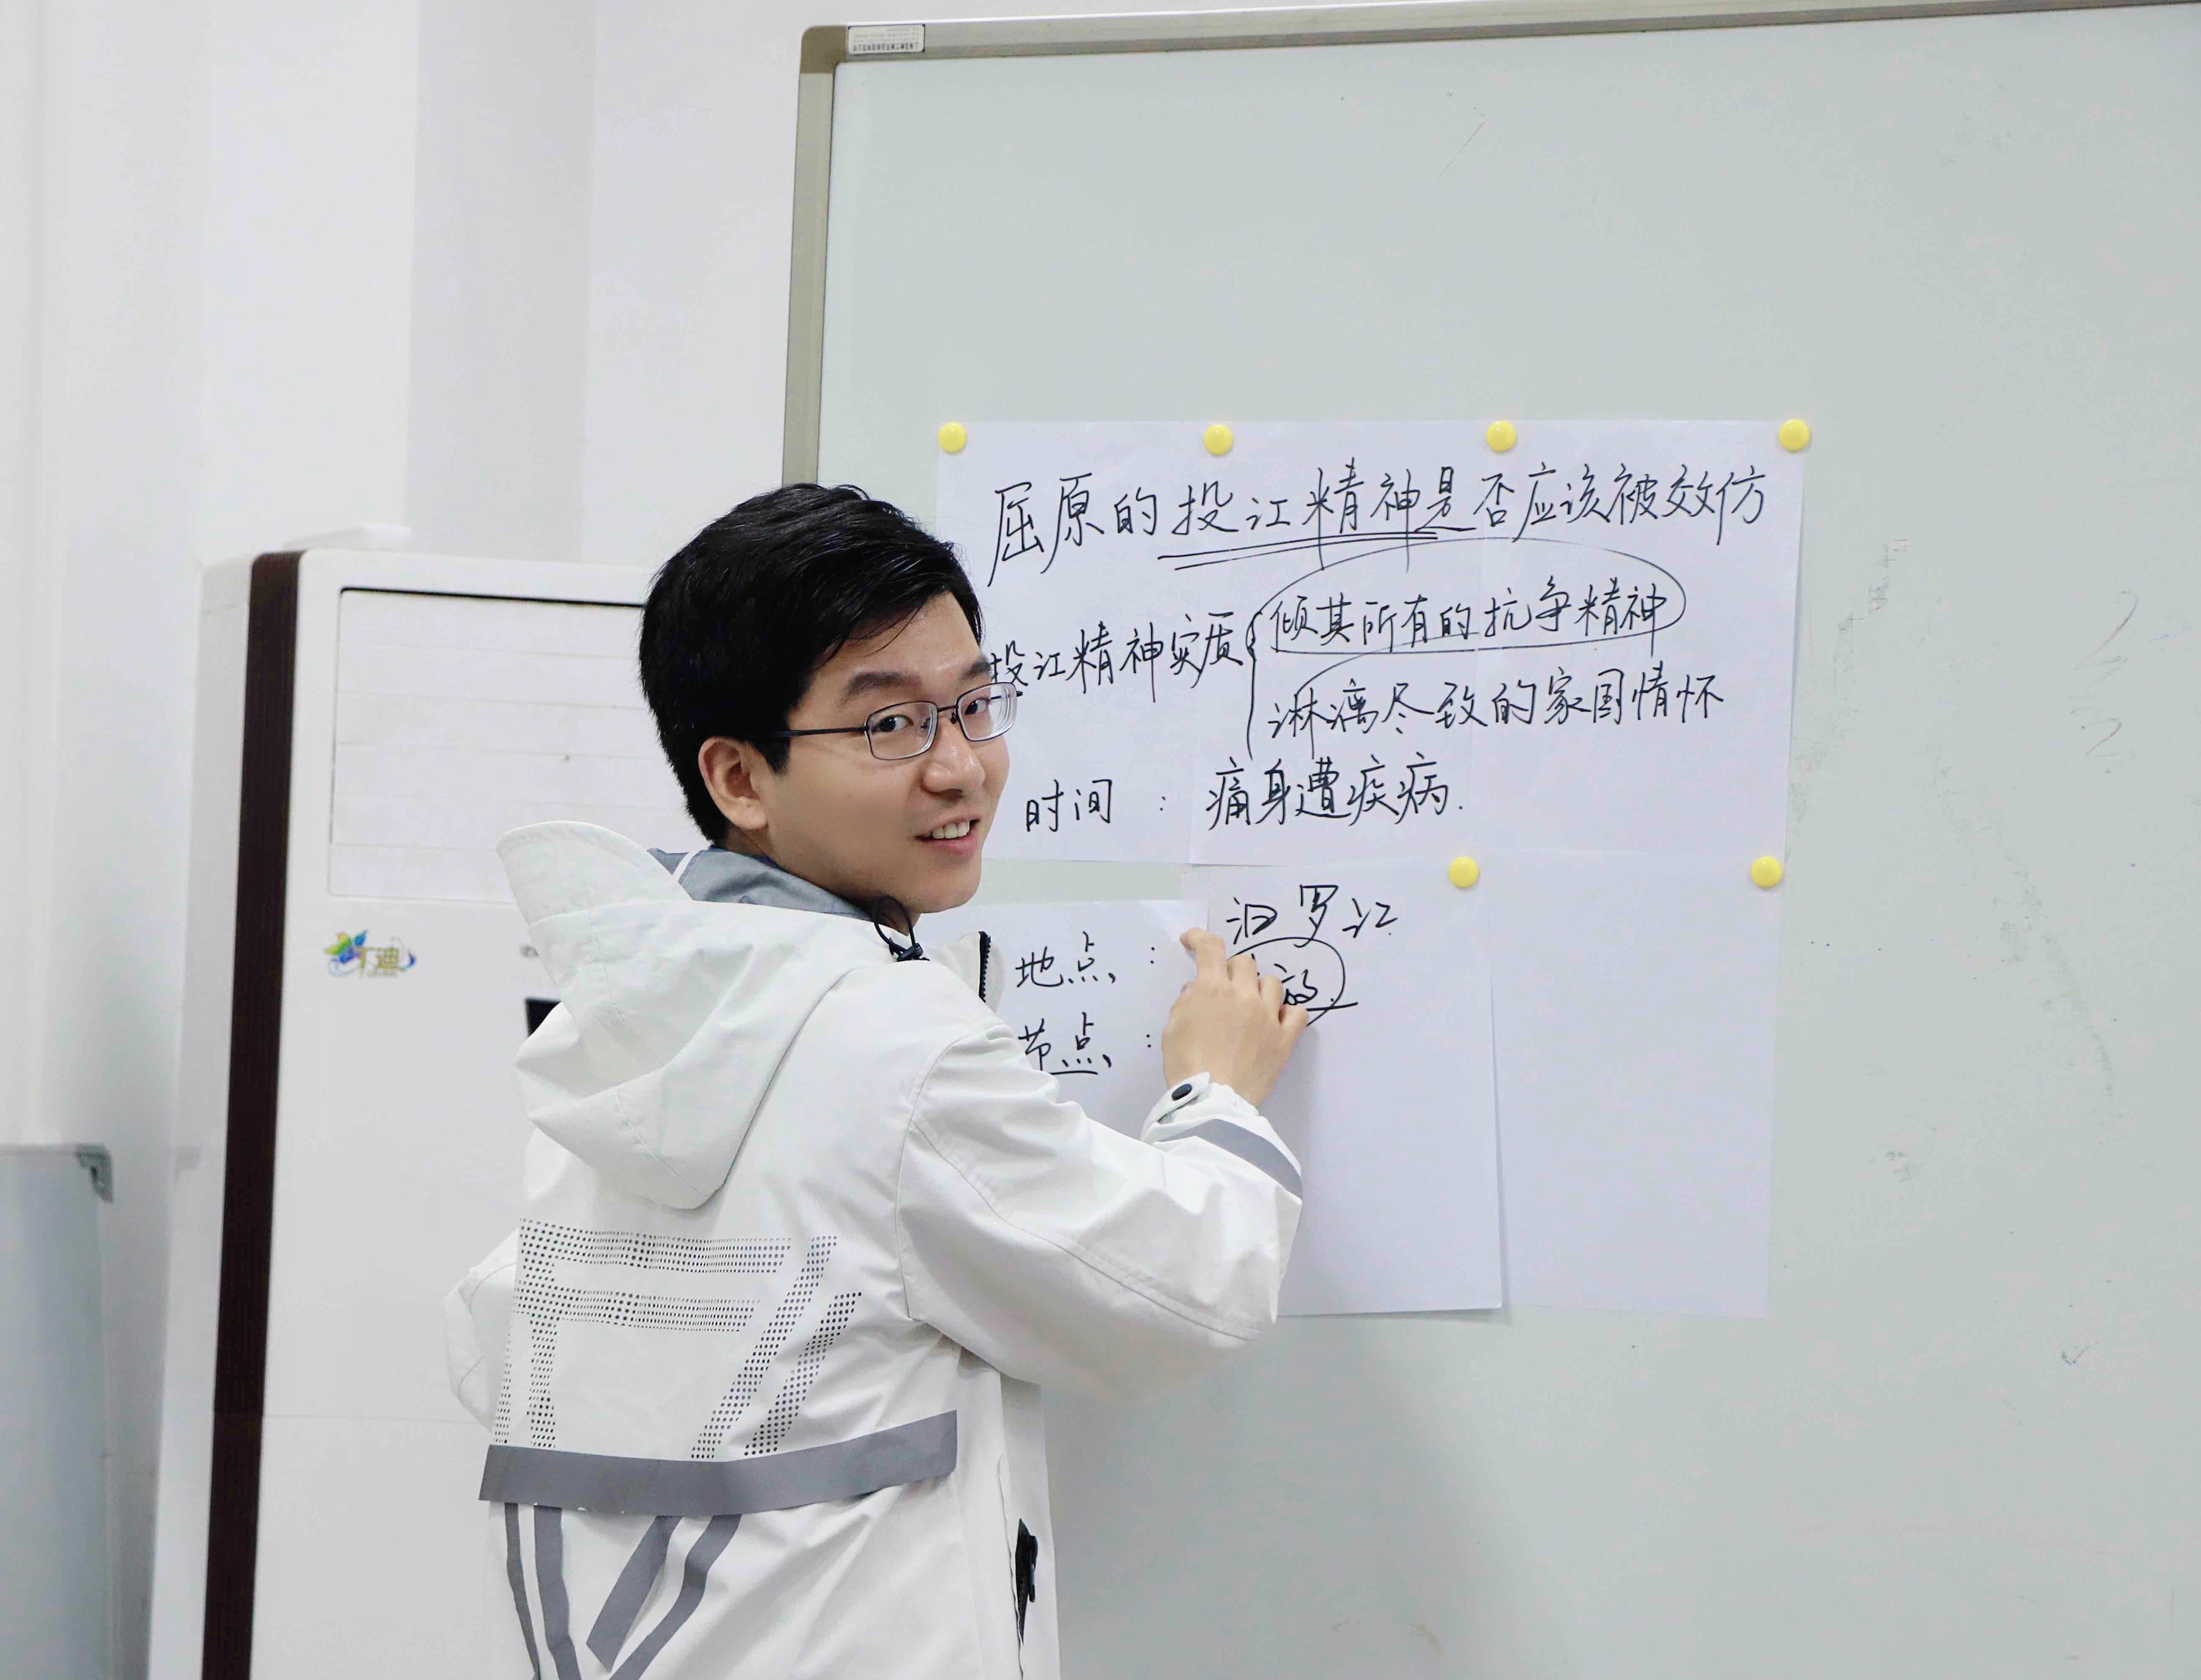 屈原的投江精神是否应该被效仿
投江精神实质{倾其所有的抗争精神
淋漓尽致的家国情怀
时间:痛身遭疾病.
地点:汨罗江
节点:放